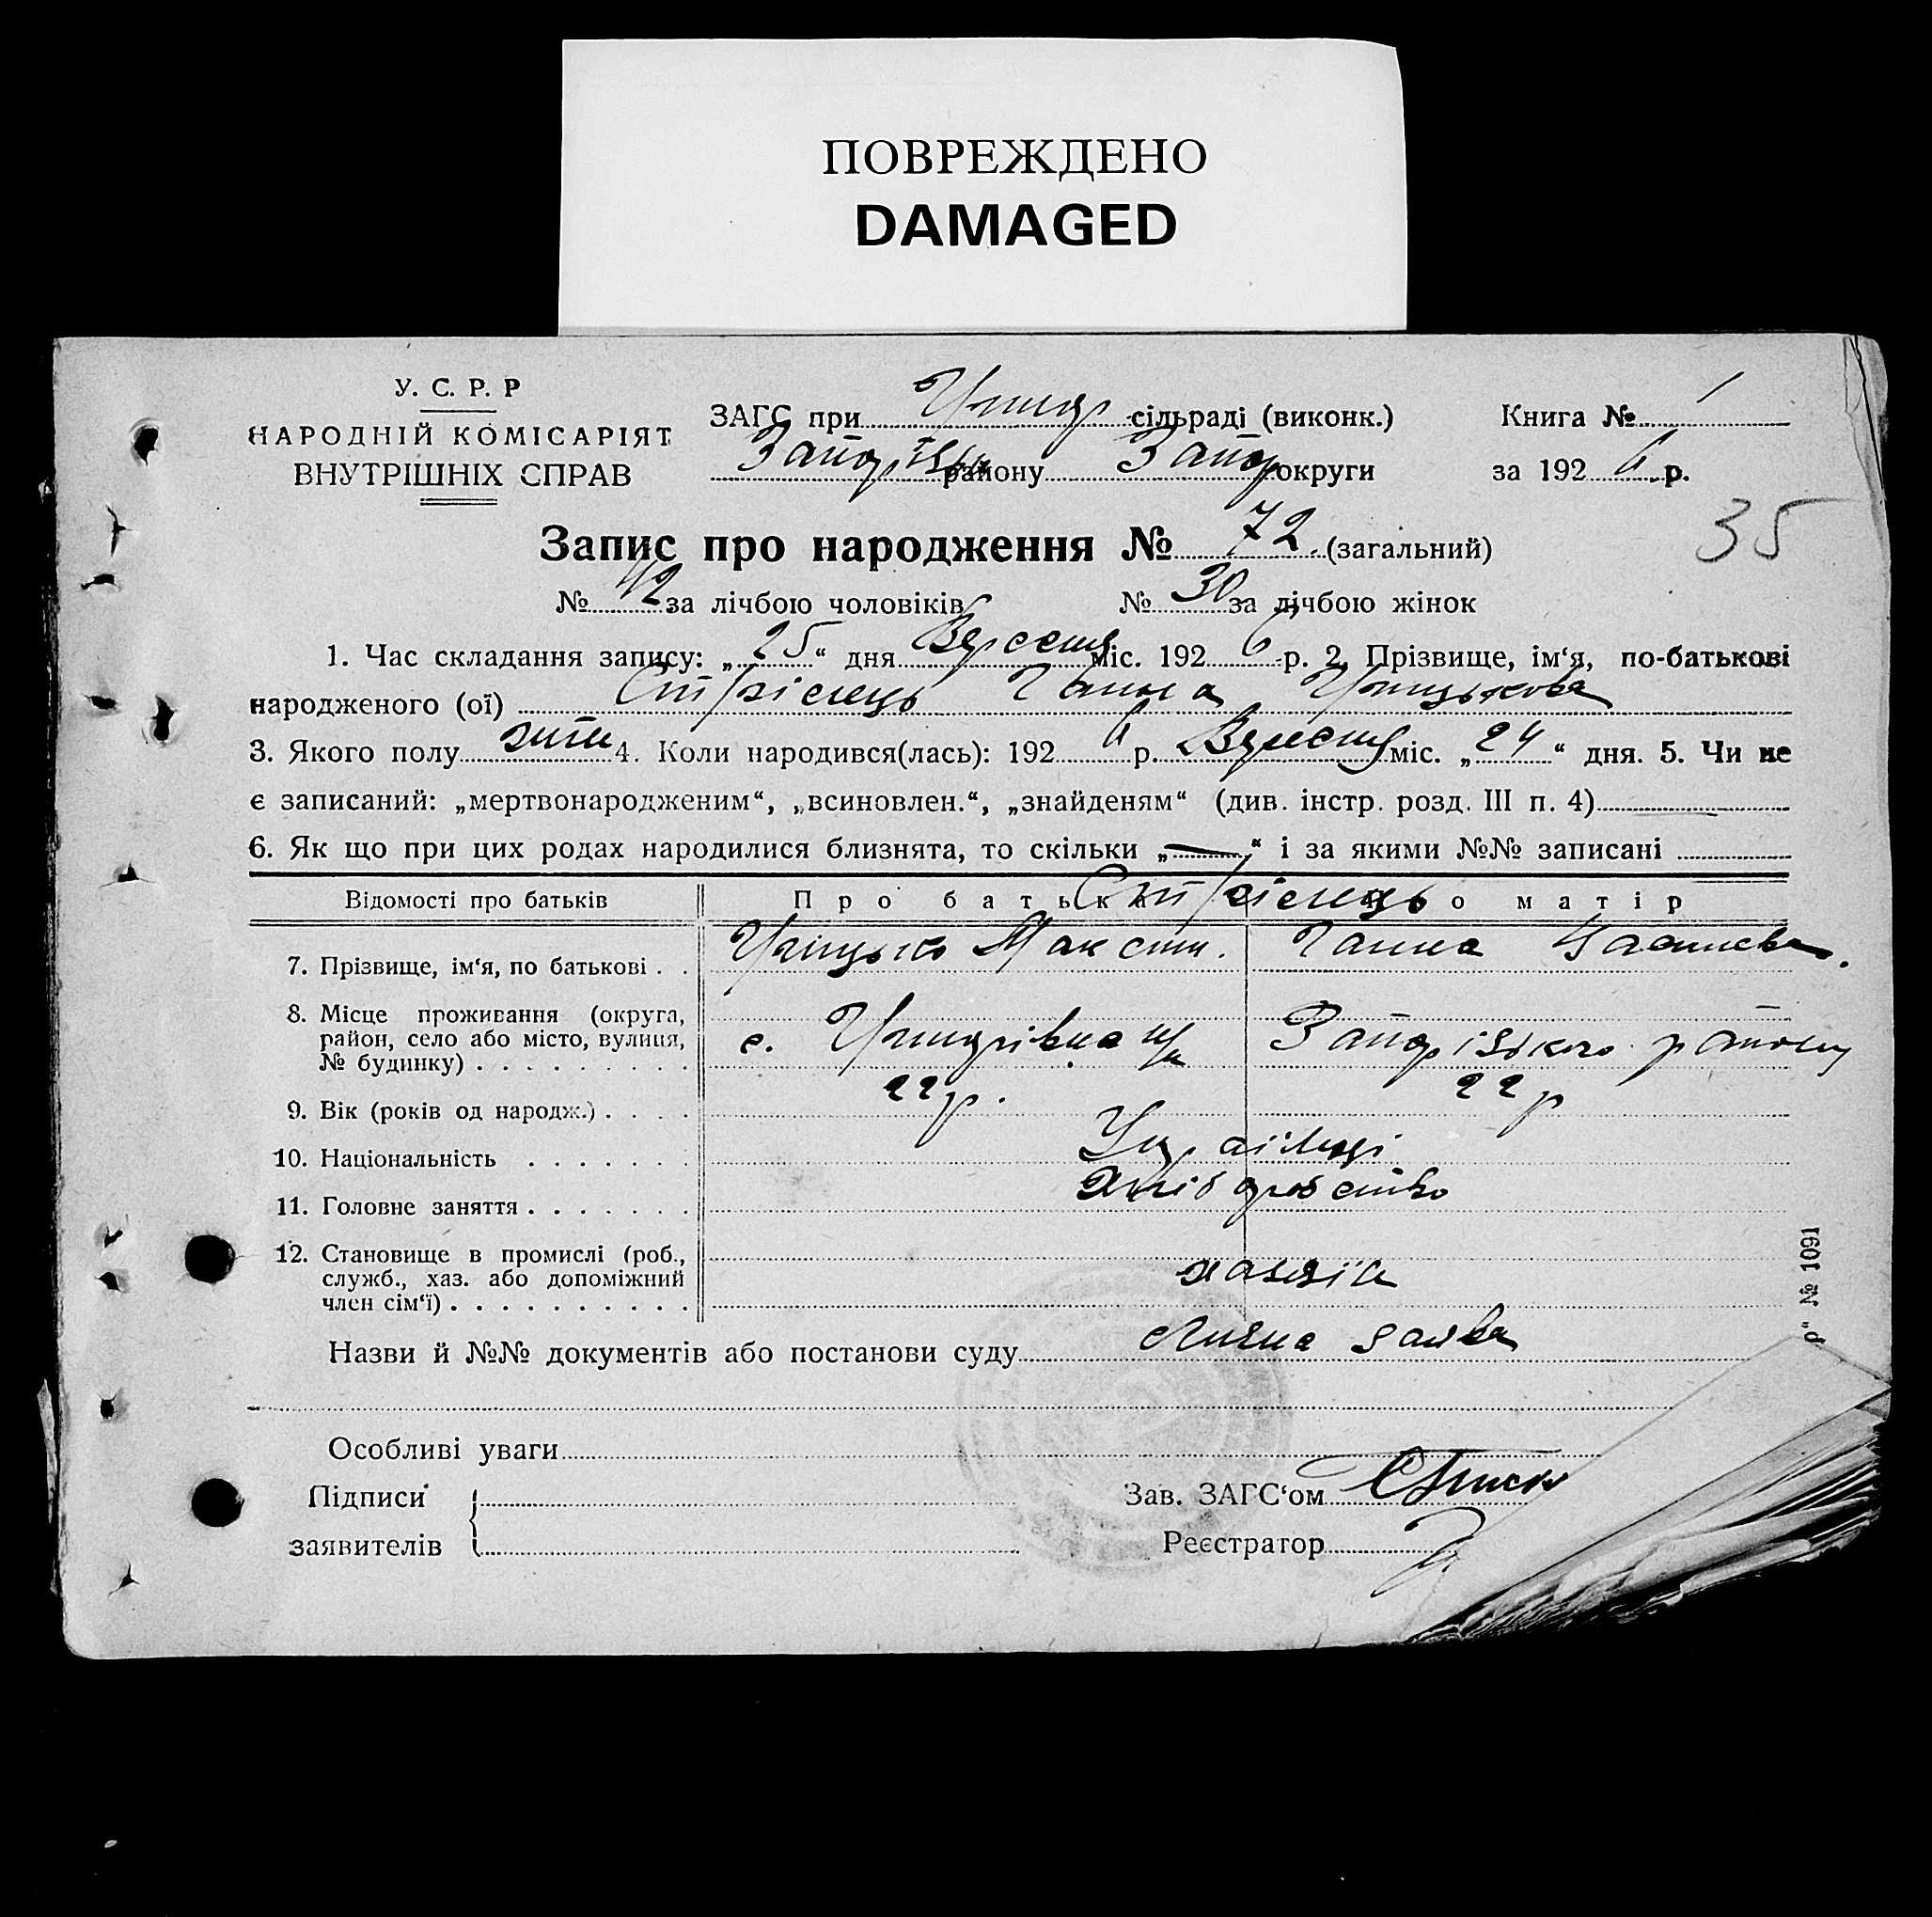 ПОВРЕЖДЕНО
DAMAGED
У. С. Р. Р
НАРОДНІЙ КОМІСАРІЯТ
ВНУТРІШНІХ СПРАВ
ЗАГС при сільраді (виконк.) Книга № 1
району Запор округи за 1926 р.
35
Запис про народження № 72 (загальний)
№ 42 за лічбою чоловіків № 30 за лічбою жінок
1. Час складання запису: „25“ дня Вересня міс. 1926 р. 2. Прізвище, ім‘я, по-батькові
народженого (ої) Стрілець Ганна Грицькова
3. Якого полу жін 4. Коли народився(лась): 1926 р. Вересня міс. „24“ дня. 5. Чи не
є записаний: „мертвонародженим“, „всиновлен.“, „знайденям“ (див. інстр. розд. III п. 4)
6. Як що при цих родах народилися близнята, то скільки „—“ і за якими №№ записані
Відомості про батьків Про батька Стрілець Про матір
7. Прізвище, ім‘я, по батькові . . Грицько Максим. Ганна
8. Місце проживання (округа,
район, село або місто, вулиця, с.
№ будинку) . . . . . . . . . району
9. Вік (років од народж.) . . . . 22 р. 22 р
10. Національність . . . . . . . Українці
11. Головне заняття . . . . . . . хліборобство
12. Становище в промислі (роб.,
служб., хаз. або допоміжний хазяїн
член сім‘ї) . . . . . . . . . .
Назви й №№ документів або постанови суду Лична заява
Особливі уваги
Підписи Зав. ЗАГС‘ом
заявителів Реєстратор
р“ № 1091